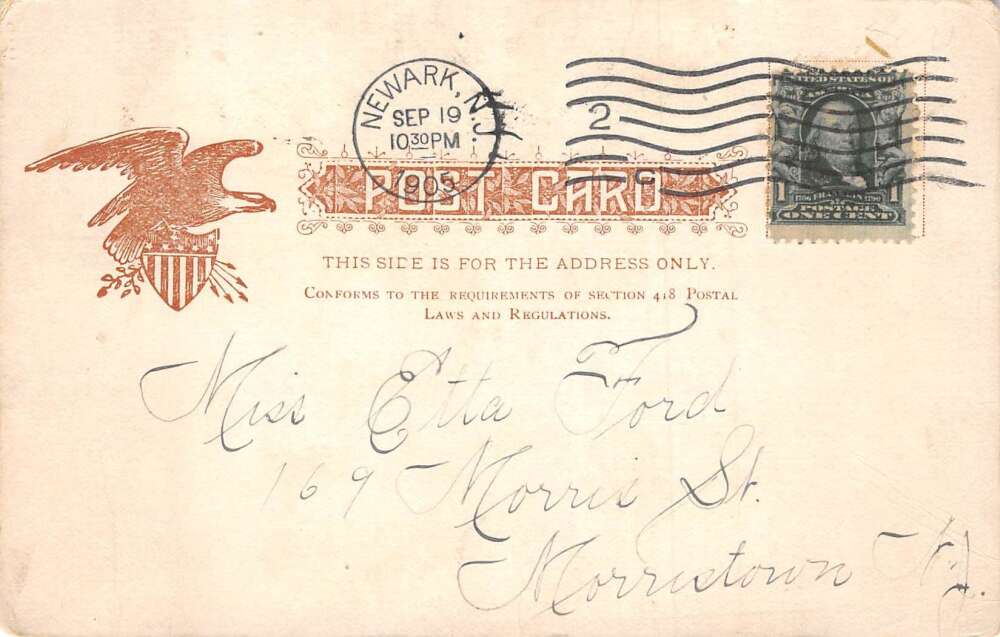 NEWARK, N.J.
SEP 19
10 30 PM
1905
2
C
UNITED STATES OF
AMERICA
1 1
1706 FRANKLIN 1790
POSTAGE
ONE CENT
POST CARD
THIS SIDE IS FOR THE ADDRESS ONLY.
CONFORMS TO THE REQUIREMENTS OF SECTION 418 POSTAL
LAWS AND REGULATIONS.
Miss Etta Ford
169 Morris St.
Morristown N.J.